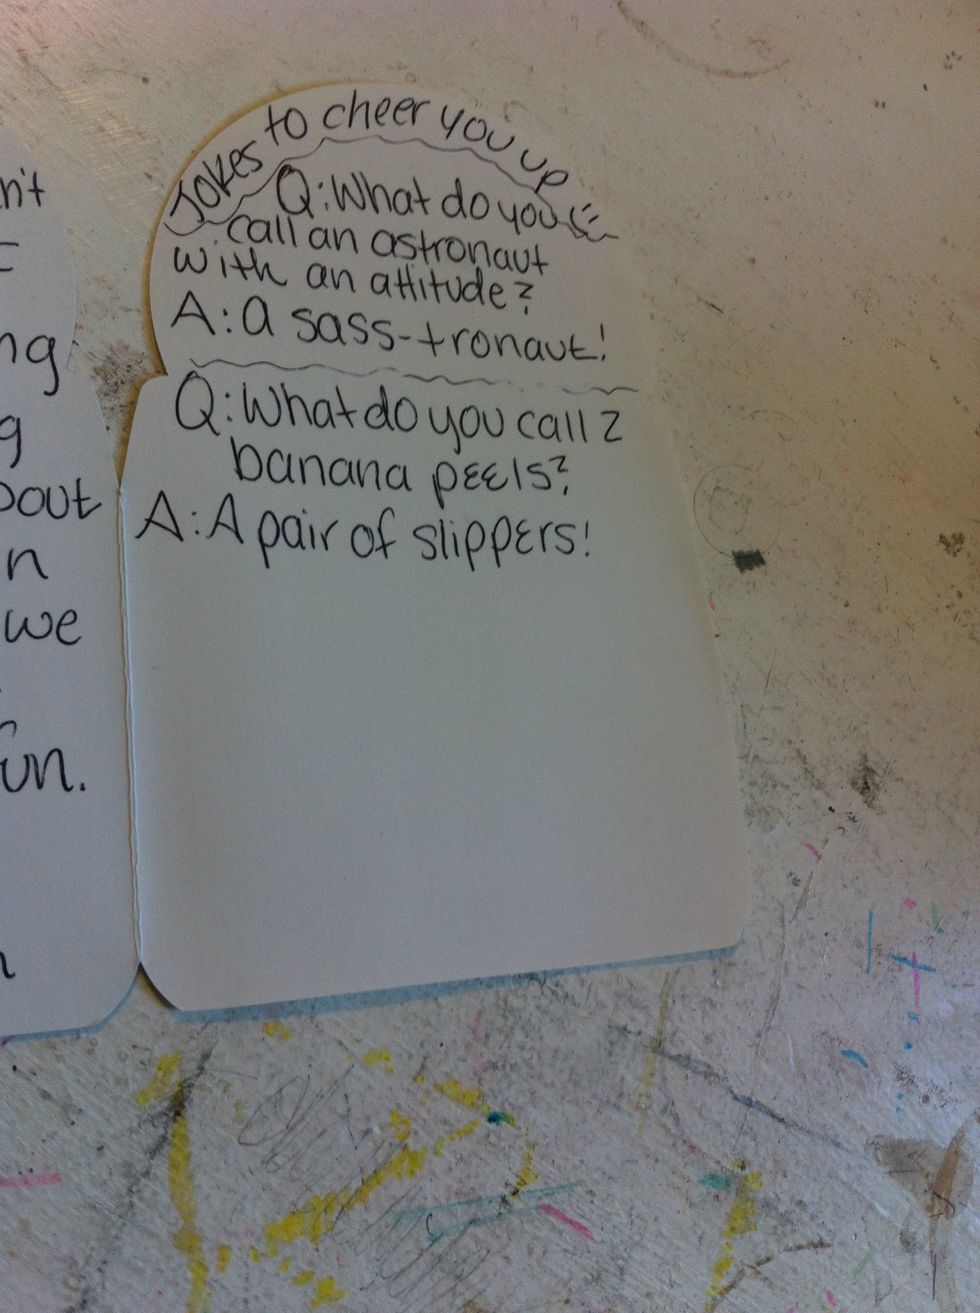 n't
ng
g
bout
n
we
un.
Jokes to cheer you up
Q: What do you
call an astronaut
with an attitude?
A: a sass-tronaut!
Q: What do you call 2
banana peels?
A: A pair of slippers!